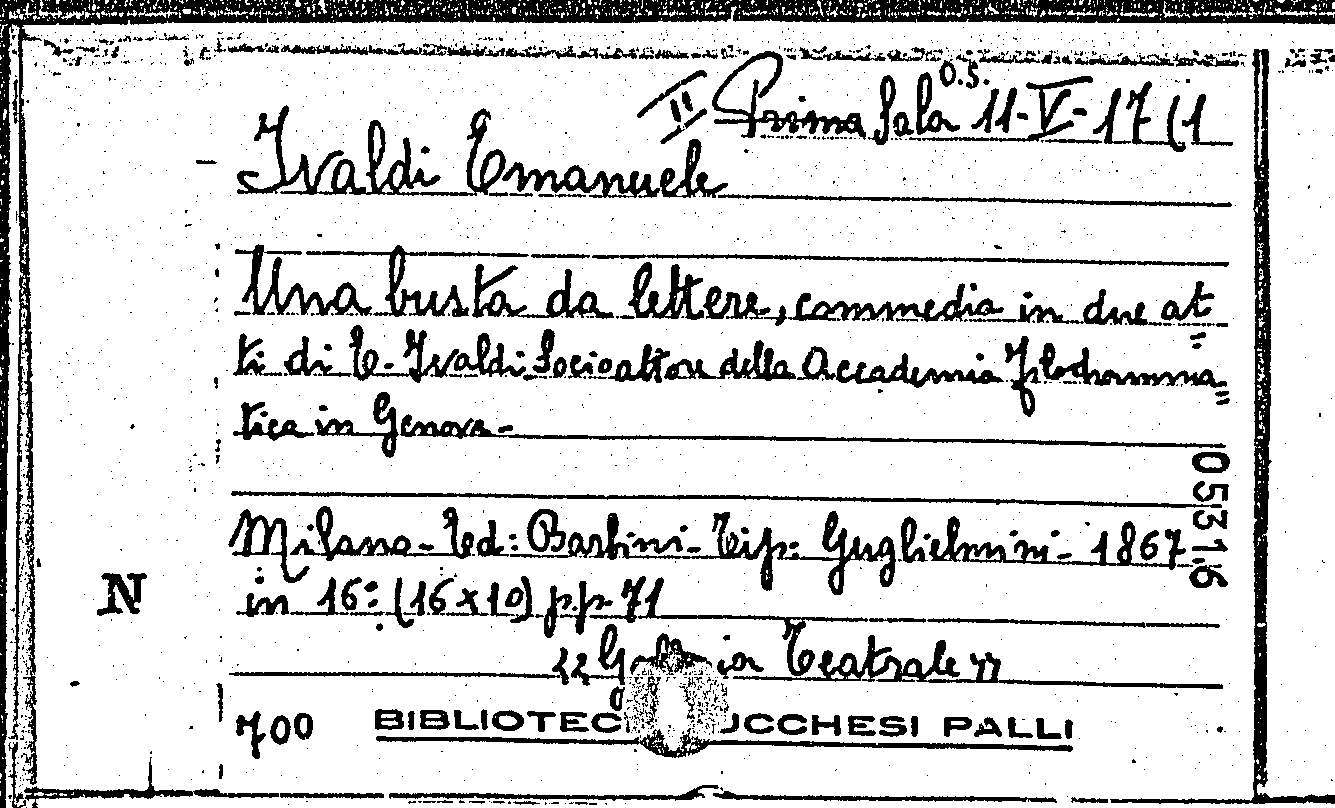 II Prima Sala O.S. 11-V-17 (1
Ivaldi Emanuele
Una busta da lettere, commedia in due at
ti di E. Ivaldi Socio attore della Accademia Filodramma
tica in Genova -
Milano - Ed: Barbini - Tip: Guglielmini - 1867
in 16º: (16x10) pp. 71
Teatrale "
700 BIBLIOTEC UCCHESI PALLI
N
05316